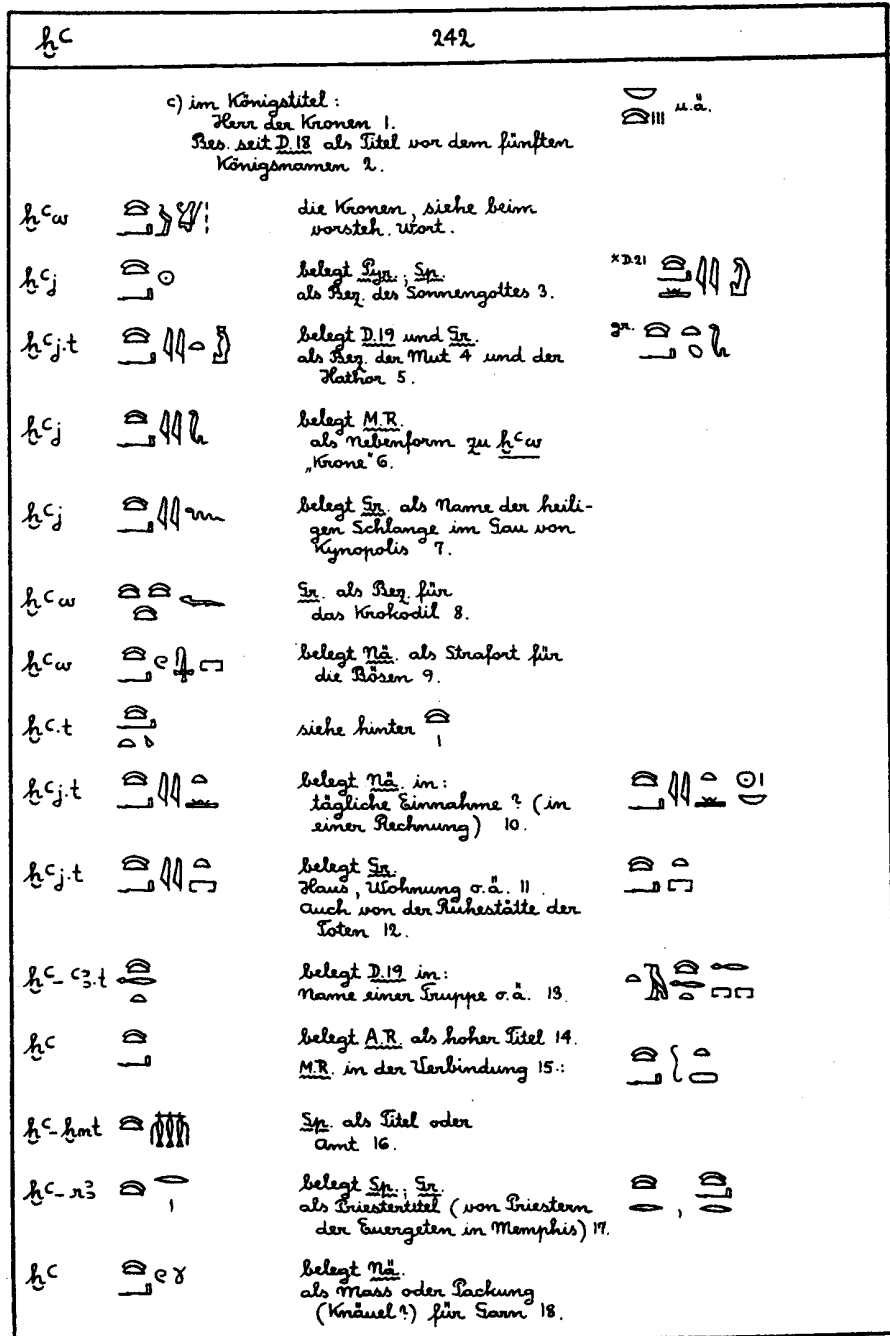 ḫꜥ 242
c) im Königstitel:
Herr der Kronen 1. 𓎟 𓈍 𓏥 u.ä.
Bes. seit D.18 als Titel vor dem fünften
Königsnamen 2.
ḫꜥw die Kronen, siehe beim
vorsteh. Wort.
ḫꜥj 𓈍 𓂝 𓇳 belegt Pyr.; Sp. *D.21
als Bez. des Sonnengottes 3.
ḫꜥj.t belegt D.19 und Gr. gr.
als Bez. der Mut 4 und der
Hathor 5.
ḫꜥj 𓈍 𓂝 𓇋 𓇋 𓆗 belegt M.R.
als Nebenform zu ḫꜥw
„Krone" 6.
ḫꜥj 𓈍 𓂝 𓇋 𓇋 𓆙 belegt Gr. als Name der heili-
gen Schlange im Gau von
Kynopolis 7.
ḫꜥw 𓈍 𓈍 𓈍 𓆊 Gr. als Bez. für
das Krokodil 8.
ḫꜥw belegt Nä. als Strafort für
die Bösen 9.
ḫꜥ.t siehe hinter 𓈍 𓏤
ḫꜥj.t belegt Nä. in:
tägliche Einnahme? (in
einer Rechnung) 10.
ḫꜥj.t 𓈍 𓂝 𓇋 𓇋 𓏏 𓉐 belegt Gr. 𓈍 𓂝 𓏏 𓉐
Haus, Wohnung o.ä. 11.
Auch von der Ruhestätte der
Toten 12.
ḫꜥ-ꜥꜣ.t 𓈍 𓉻 𓏏 belegt D.19 in:
Name einer Truppe o.ä. 13.
ḫꜥ 𓈍 𓂝 belegt A.R. als hoher Titel 14.
M.R. in der Verbindung 15.:
ḫꜥ-ḫmt 𓈍 Sp. als Titel oder
Amt 16.
ḫꜥ-rꜣ 𓈍 𓂋 𓏤 belegt Sp.; Gr. 𓈍 𓂋, 𓈍 𓂝 𓂋
als Priestertitel (von Priestern
der Euergeten in Memphis) 17.
ḫꜥ 𓈍 𓂝 𓏲 𓍱 belegt Nä.
als Mass oder Packung
(Knäuel?) für Garn 18.